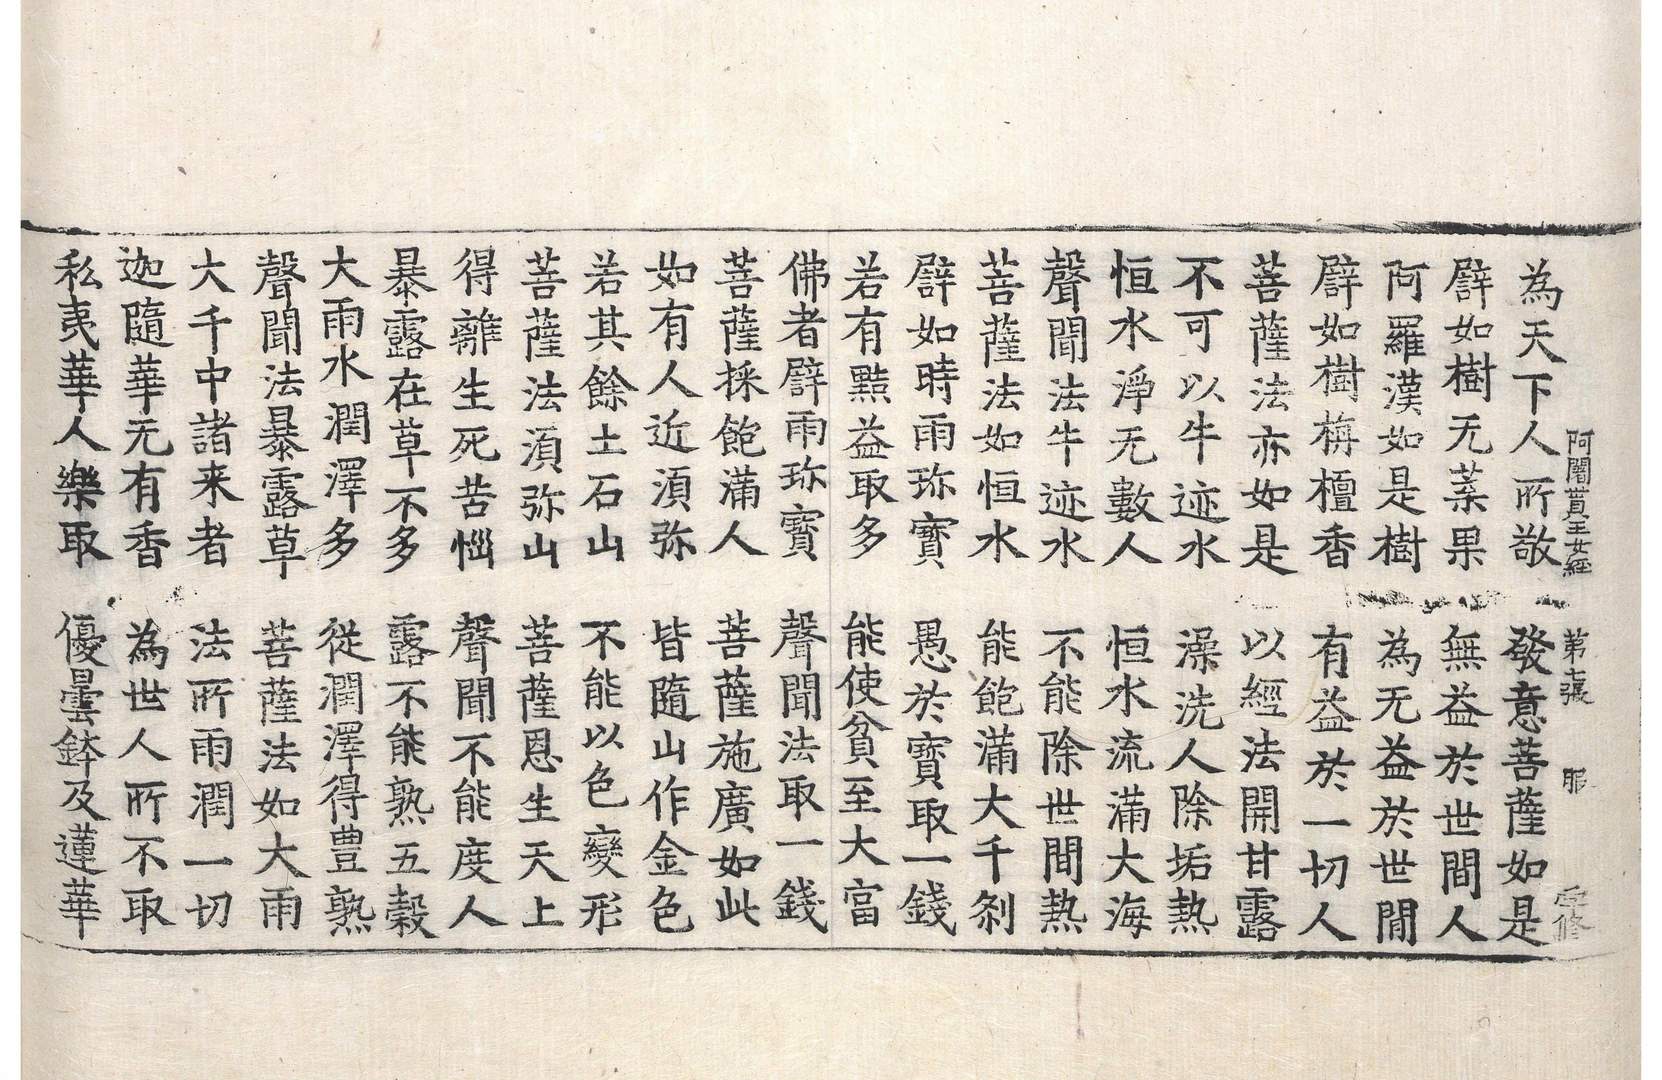 阿闍貰王女經 第七張 服
為天下人所敬 發意菩薩如是
譬如樹无葉果 無益於世間人
阿羅漢如是樹 為无益於世間
譬如樹栴檀香 有益於一切人
菩薩法亦如是 以經法開甘露
不可以牛迹水 澡洗人除垢熱
恒水淨无數人 恒水流滿大海
聲聞法牛迹水 不能除世間熱
菩薩法如恒水 能飽滿大千刹
譬如時雨珎寶 愚於寶取一錢
若有黠益取多 能使貧至大富
佛者譬雨珎寶 聲聞法取一錢
菩薩採飽滿人 菩薩施廣如此
如有人近湏弥 皆隨山作金色
若其餘土石山 不能以色變形
菩薩法湏弥山 菩薩恩生天上
得離生死苦惱 聲聞不能度人
暴露在草不多 露不能熟五穀
大雨水潤澤多 從潤澤得豊熟
聲聞法暴露草 菩薩法如大雨
大千中諸来者 法所雨潤一切
迦隨華无有香 為世人所不取
私夷華人樂取 優曇鉢及蓮華